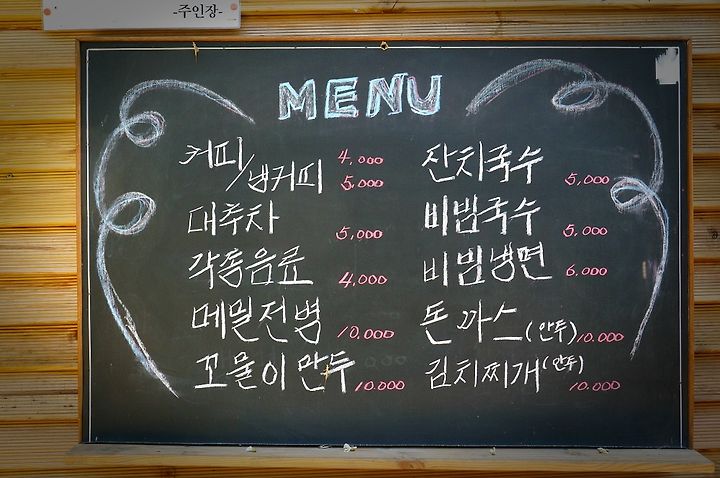 -주인장-
MENU
커피/ 4,000
냉커피 5,000
대추차 5,000
각종음료 4,000
메밀전병 10,000
꼬물이만두 10,000
잔치국수 5,000
비빔국수 5,000
비빔냉면 6,000
돈까스(안두) 10,000
김치찌개(안두) 10,000